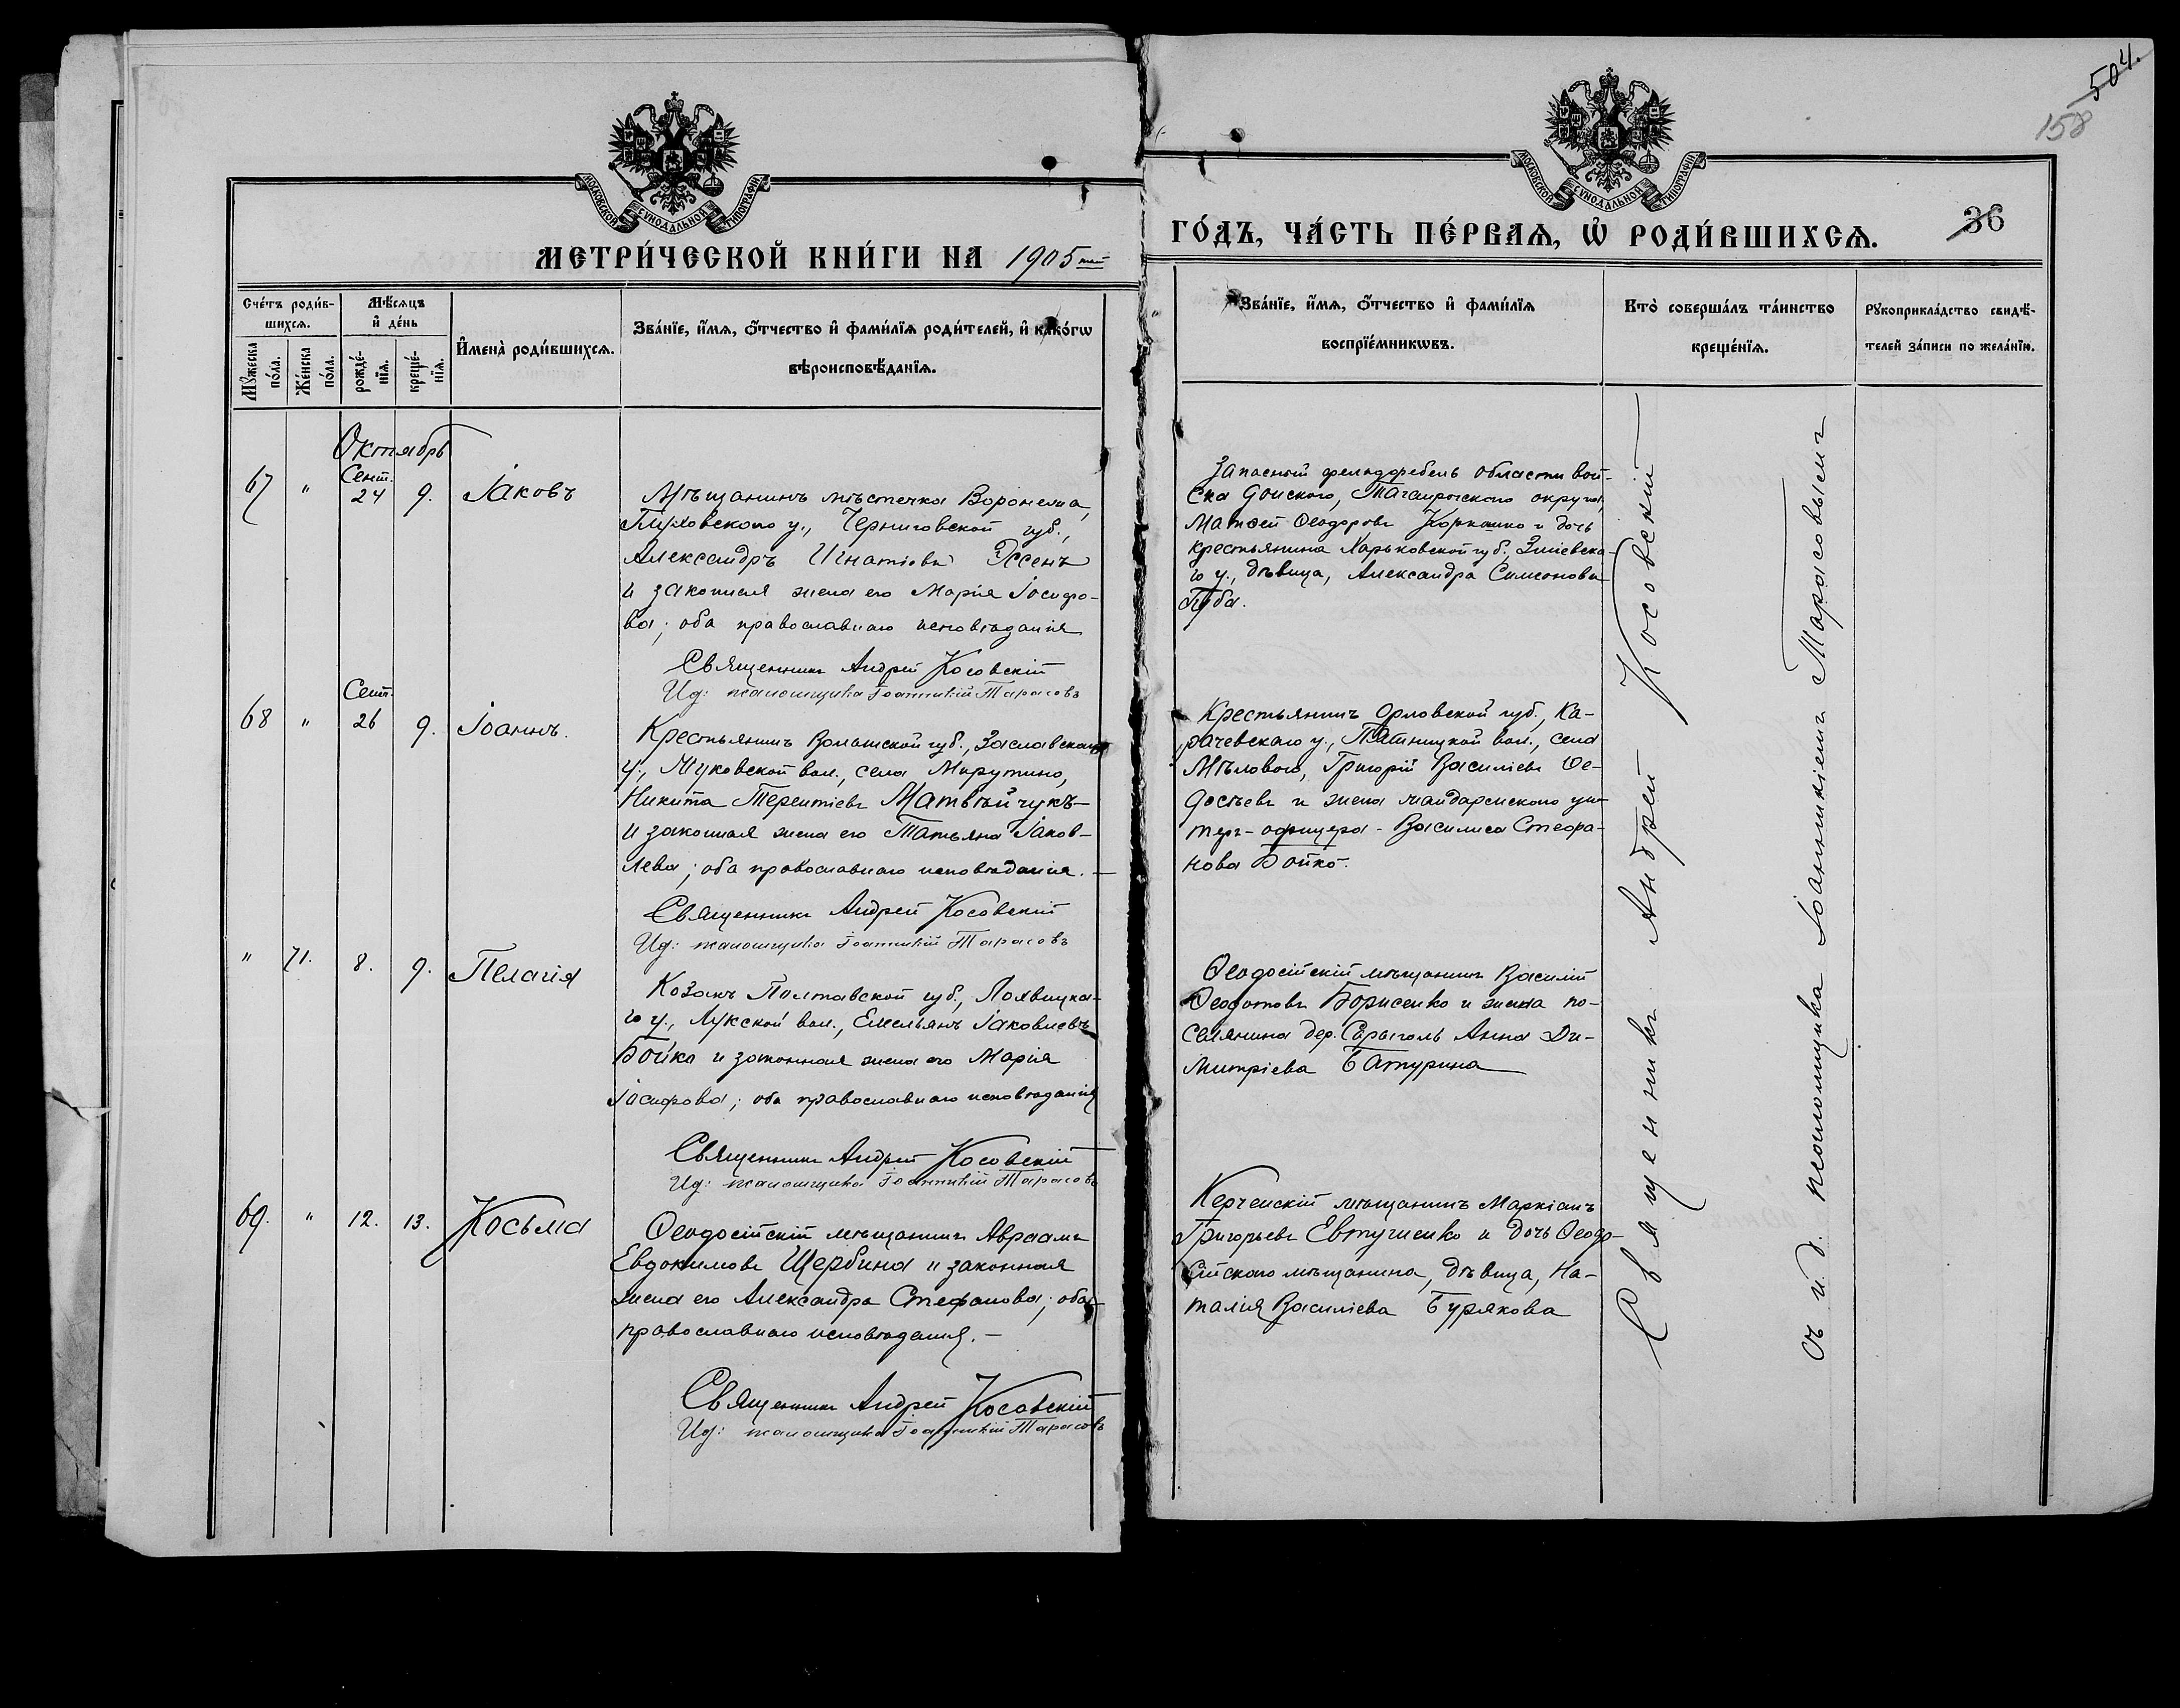 504.
158
МОСКОВСКОЙ СѴНОДАЛЬНОЙ ТИПОГРАФІИ
МОСКОВСКОЙ СѴНОДАЛЬНОЙ ТИПОГРАФІИ
МЕТРИ́ЧЕСКОЙ КНИ́ГИ НА 1905
ГО́ДЪ, ЧА́СТЬ ПЕ́РВАѦ, Ѡ҆ РОДИ́ВШИХСѦ. 36
Сче́тъ роди́в-
шихсѧ.
Мѣ́сѧцъ
и҆ де́нь
Мꙋ́жеска по́ла.
Же́нска по́ла.
рожде́-
нїѧ.
креще́-
нїѧ.
И҆мена̀ роди́вшихсѧ.
Зва́нїе, и҆́мѧ, ѻ҆́тчество и҆ фами́лїѧ роди́телей, и҆ како́гѡ
вѣроисповѣ́данїѧ.
Зва́нїе, и҆́мѧ, ѻ҆́тчество и҆ фами́лїѧ
воспрїе́мникѡвъ.
Кто̀ соверша́лъ та́инство
креще́нїѧ.
Рꙋкоприкла́дство свидѣ́-
телей за́писи по жела́нїю.
Октябрь
67 " Сент. 24 9. Іаковъ
Мѣщанинъ мѣстечка Воронежа,
Глуховского у., Черниговской губ.,
Александръ Игнатіевъ Эссенъ
и законная жена его Марія Іосифо-
ва; оба православнаго исповѣданія
Священникъ Андрей Косовскій
Ид: псаломщика Іоанникій Тарасовъ
Запасный фельдфебель области вой-
ска Донского, Таганрогского округа,
Матѳей Ѳеодоровъ и дочь
крестьянина Харьковской губ., Зміевска-
го у., дѣвица, Александра Симеонова
Губа.
68 " Сент. 26 9. Іоаннъ.
Крестьянинъ Волынской губ., Заславскаго
у., вол., села Мирутино,
Никита Терентіевъ Матвѣйчукъ
и законная жена его Татьяна Іаков-
лева; оба православнаго исповѣданія.
Священникъ Андрей Косовскій
Ид: псаломщика Іоанникій Тарасовъ
Крестьянинъ Орловской губ., Ка-
рачевскаго у., Пятницкой вол., села
Мѣлового, Григорій Василіевъ Ѳе-
досѣевъ и жена жандармского ун-
теръ-офицера - Василиса Стефа-
нова Бойко.
" 71. 8. 9. Пелагія
Козакъ Полтавской губ., Лохвицка-
го у., Лукской вол., Емельянъ Іаковлевъ
Бойко и законная жена его Марія
Іосифова; оба православнаго исповѣданія
Священникъ Андрей Косовскій
Ид: псаломщика Іоанникій Тарасовъ
Ѳеодосійскій мѣщанинъ Василій
Ѳеодотовъ Борисенко и жена по-
селянина дер. Сарыголь Анна Ди-
митріева Батурина
69. " 12. 13. Косьма
Ѳеодосійскій мѣщанинъ Авраамъ
Евдокимовъ Щербина и законная
жена его Александра Стефанова; оба
православнаго исповѣданія.
Священникъ Андрей Косовскій
Ид: псаломщика Іоанникій Тарасовъ
Керченскій мѣщанинъ Маркіанъ
Григорьевъ Евтушенко и дочь Ѳеодо-
сійского мѣщанина, дѣвица, На-
талія Василіева Бурякова
Священникъ Андрей Косовскій
съ и.д. псаломщика Іоанникіемъ Тарасовымъ